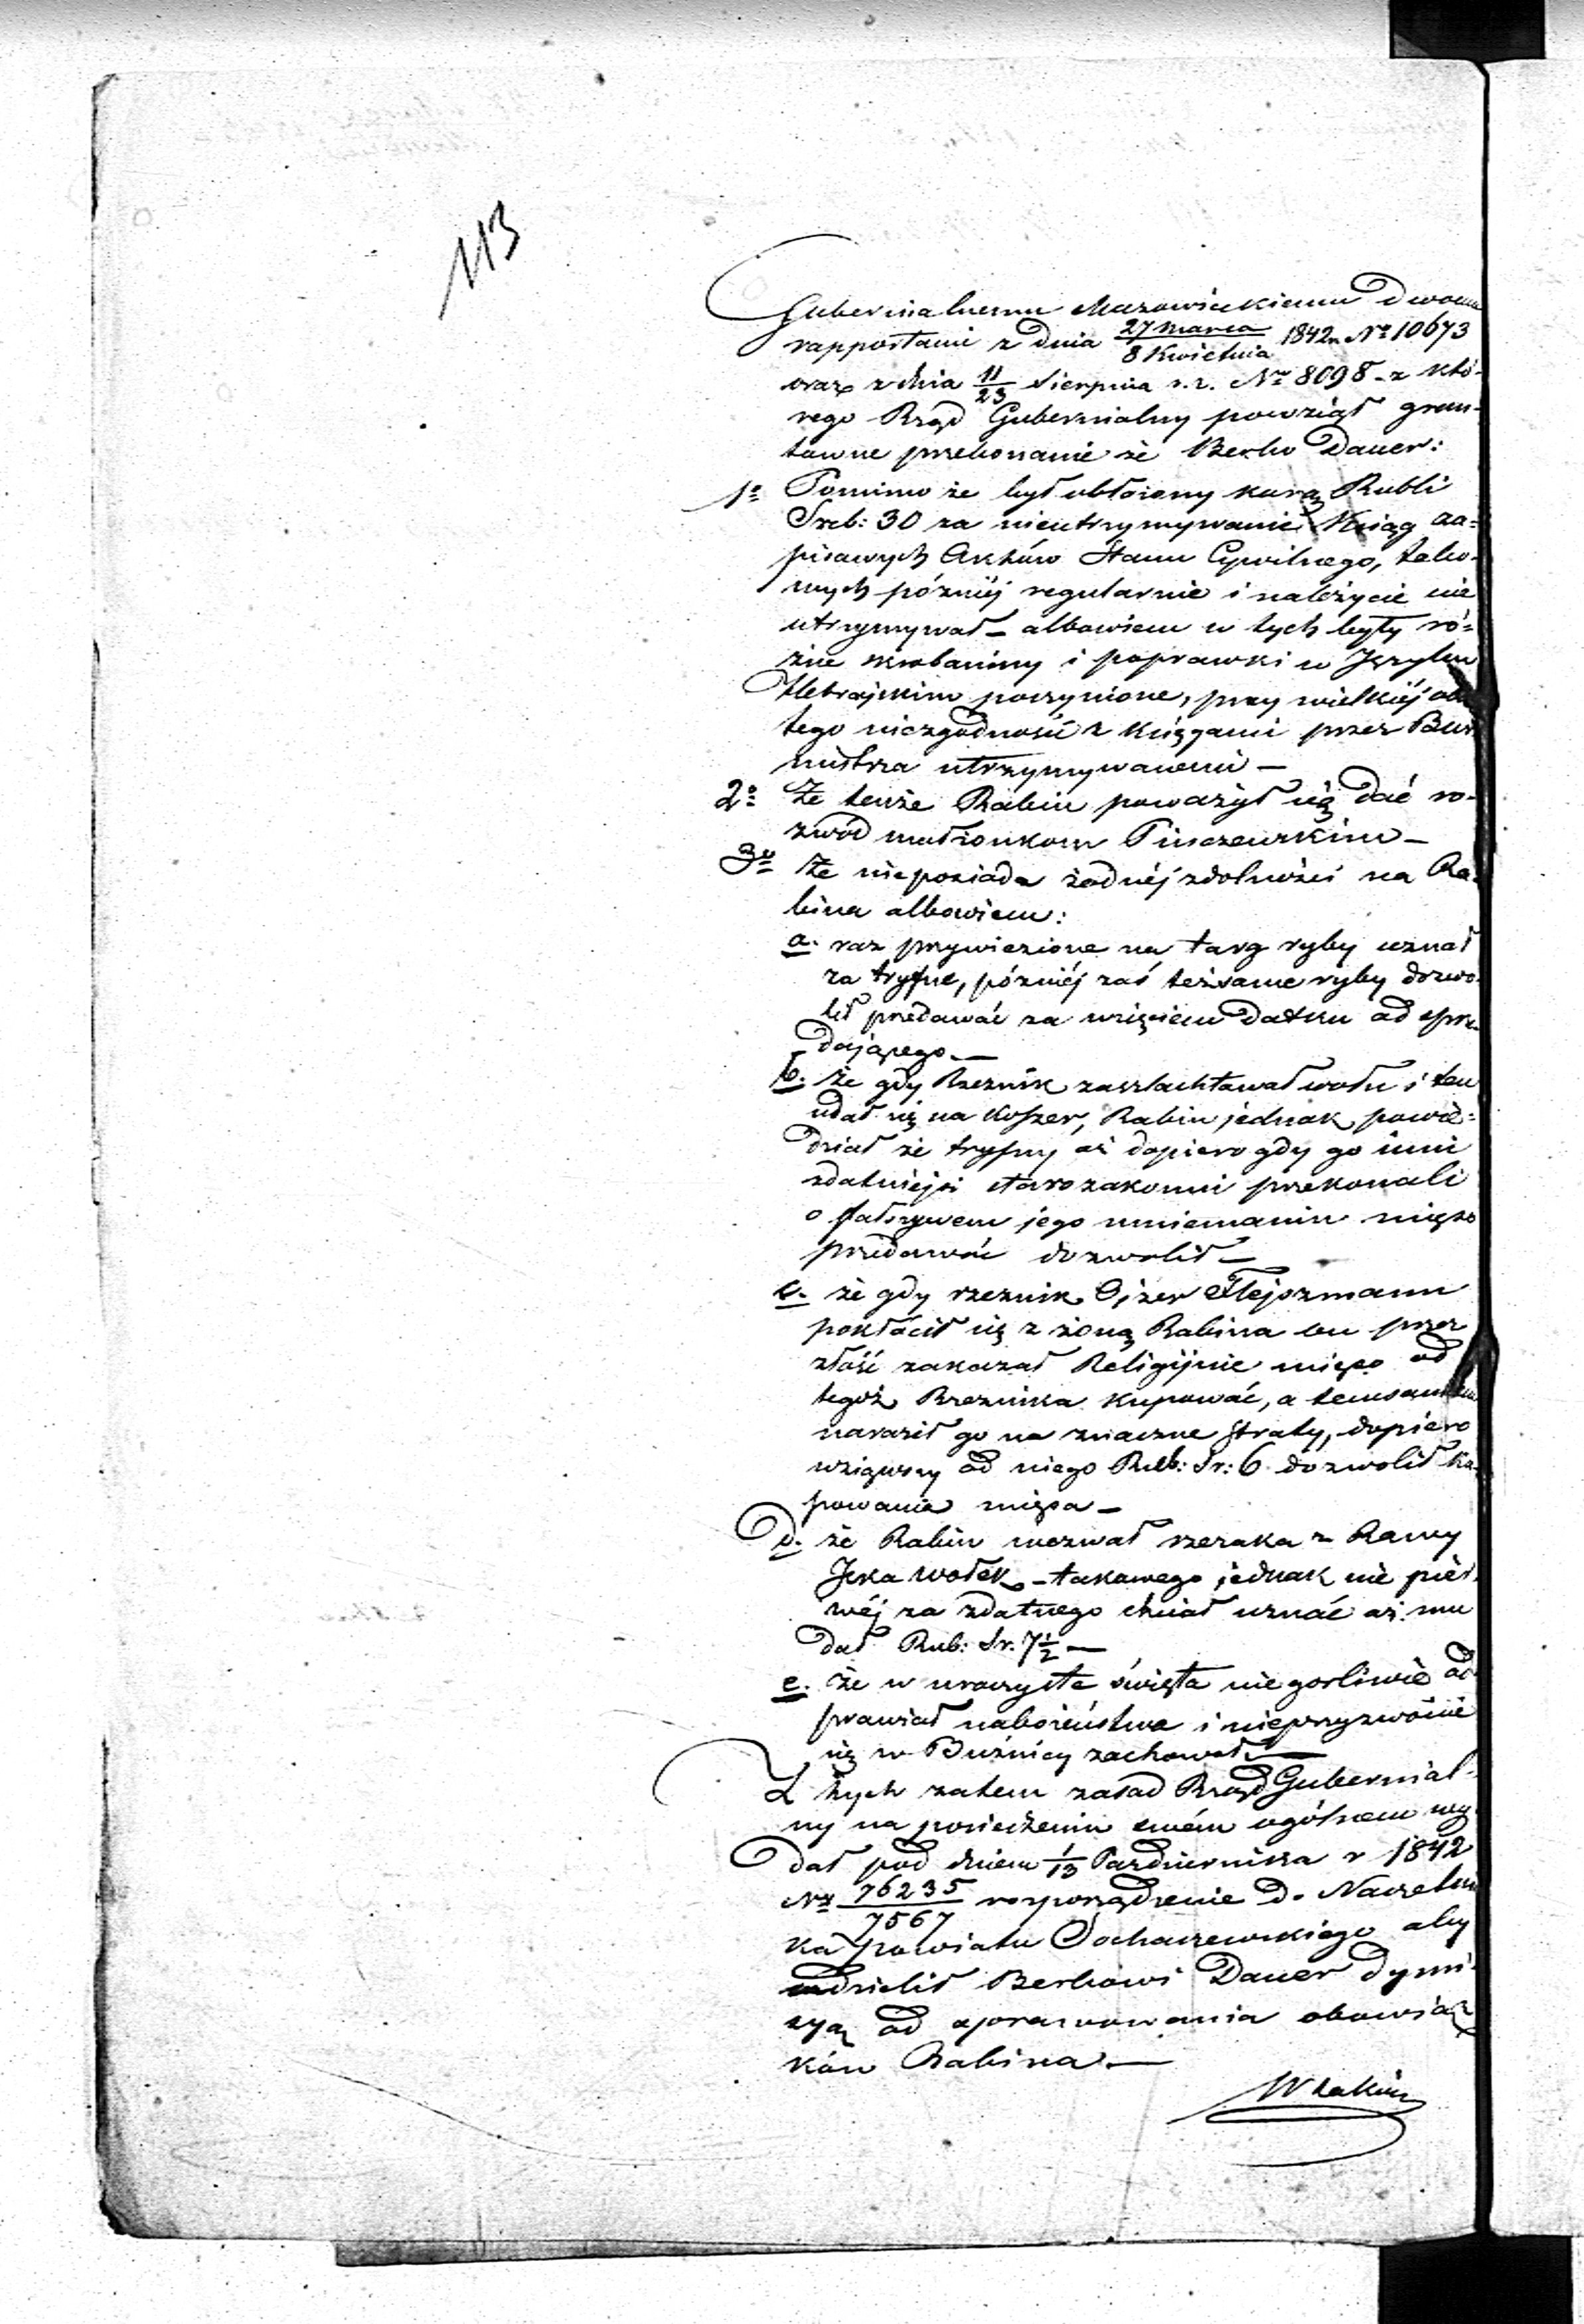 113
Gubernialnemu Mazowieckiemu dwoma
rapportami z dnia 27 Marca / 8 Kwietnia 1842 r. No 10673
oraz z dnia 11/23 Sierpnia r. z. Nr 8098 - z któ-
rego Rząd Gubernialny powziął grun-
towne przekonanie że Berko Dauer:
1o Pomimo że był obłożony karą Rubli
Sreb: 30 za nieutrzymywanie Ksiąg za=
pisowych Aktów Stanu Cywilnego, tako-
wych późniéj regularnie i należycie nie
utrzymywał – albowiem w tych były ró=
żne skrobaniny i poprawki w Języku
Hebrajskim poczynione, przy wielkiéj obok
tego niezgodności z księgami przez Bur
mistrza utrzymywanemi –
2o Że tenże Rabin poważył się dać ro-
zwód małżonkom Pinczewskim –
3o Że nieposiada żadnéj zdolności na Ra-
bina albowiem:
a. raz przywiezione na targ ryby uznał
za tryfne, późniéj zaś też same ryby dozwo-
lił przedawać za wzięciem datku od sprze-
dającego. –
b. że gdy Rzeznik zaszlachtował wołu i ten
udał się na koszer, Rabin jednak powie=
dział że tryfny aż dopiero gdy go inni
zdatniejsi starozakonni przekonali
o fałszywem jego mniemaniu mięso
przedawać dozwolił –
c. że gdy rzeznik Ojzer Flejszmann
pokłócił się z żoną Rabina on przez
złość zakazał Religijnie mięso od
tegoż Rzeznika kupować, a temsamem
naraził go na znaczne straty, dopiero
wziąwszy od niego Rub: Sr: 6 dozwolił ku-
powanie mięsa –
d. że Rabin wezwał rzezaka z Rawy
Jcka Wołek – takowego jednak nie pier-
wéj za zdatnego chciał uznać aż mu
dał Rub: Sr. 7½ –
e. Że w uroczyste święta niegorliwie od
prawiał nabożeństwa i nieprzyzwoicie
się w Bużnicy zachował. –
Z tych zatem zasad Rząd Gubernial-
ny na posiedzeniu swém ogólnem wy
dał pod dniem 1/13 Pazdziernika r 1842
Nr 76235/7567 rozporządzenie do Naczelni
ka powiatu Sochaczewskiego aby
udzielił Berkowi Dauer dymi-
syą od sprawowania obowiąz
ków Rabina. –